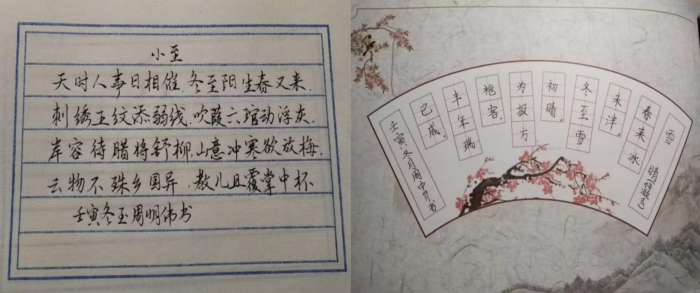 小至
天时人事日相催,冬至阳生春又来.
刺绣五纹添弱线,吹葭六琯动浮灰.
岸容待腊将舒柳,山意冲寒欲放梅.
云物不殊乡国异,教儿且覆掌中杯
壬寅冬至周明伟书
雪晴
春来冰
未泮。
冬至雪
初晴。
为报方
袍客。
丰年瑞
已成。
壬寅冬月